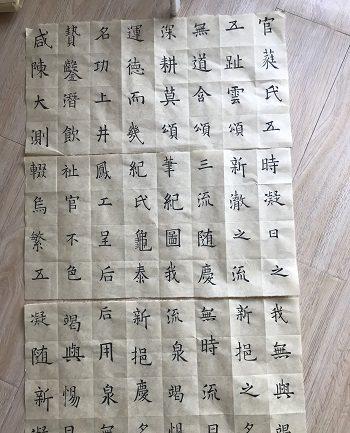 官蕤氏五
五趾雲頌
無道含頌
深耕莫頌
運德而幾
名功上井
贊鑿潛飲
咸陳大測
時凝日之
新澈之流
三流随慶
筆紀圖我
紀氏龜泰
鳳工呈后
祉官不色
輟烏繁五
我無與
新挹之
無時流
流泉竭
新挹慶
后用泉
竭與惕
凝随新